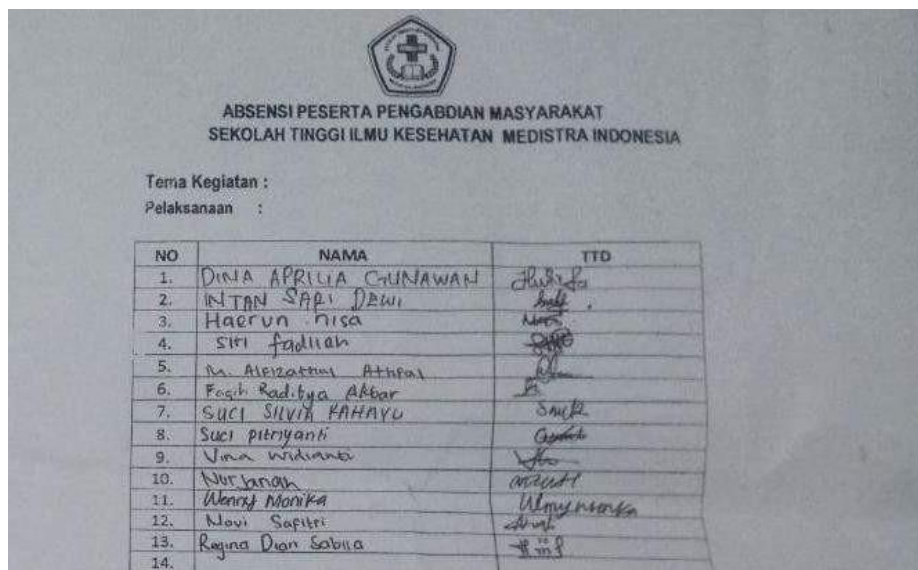 ABSENSI PESERTA PENGABDIAN MASYARAKAT
SEKOLAH TINGGI ILMU KESEHATAN MEDISTRA INDONESIA
Tema Kegiatan :
Pelaksanaan :
NO NAMA TTD
1. DINA APRILIA GUNAWAN
2. INTAN SARI DEWI
3. Haerun nisa
4. Siti fadliah
5. M. Athfal
6. Faqih Raditya Akbar
7. SUCI SILVIA RAHAYU
8. Suci pitriyanti
9. Vina Widianti
10. Nurjanah
11. Wenny Monika
12. Novi Safitri
13. Regina Dian Sabila
14.